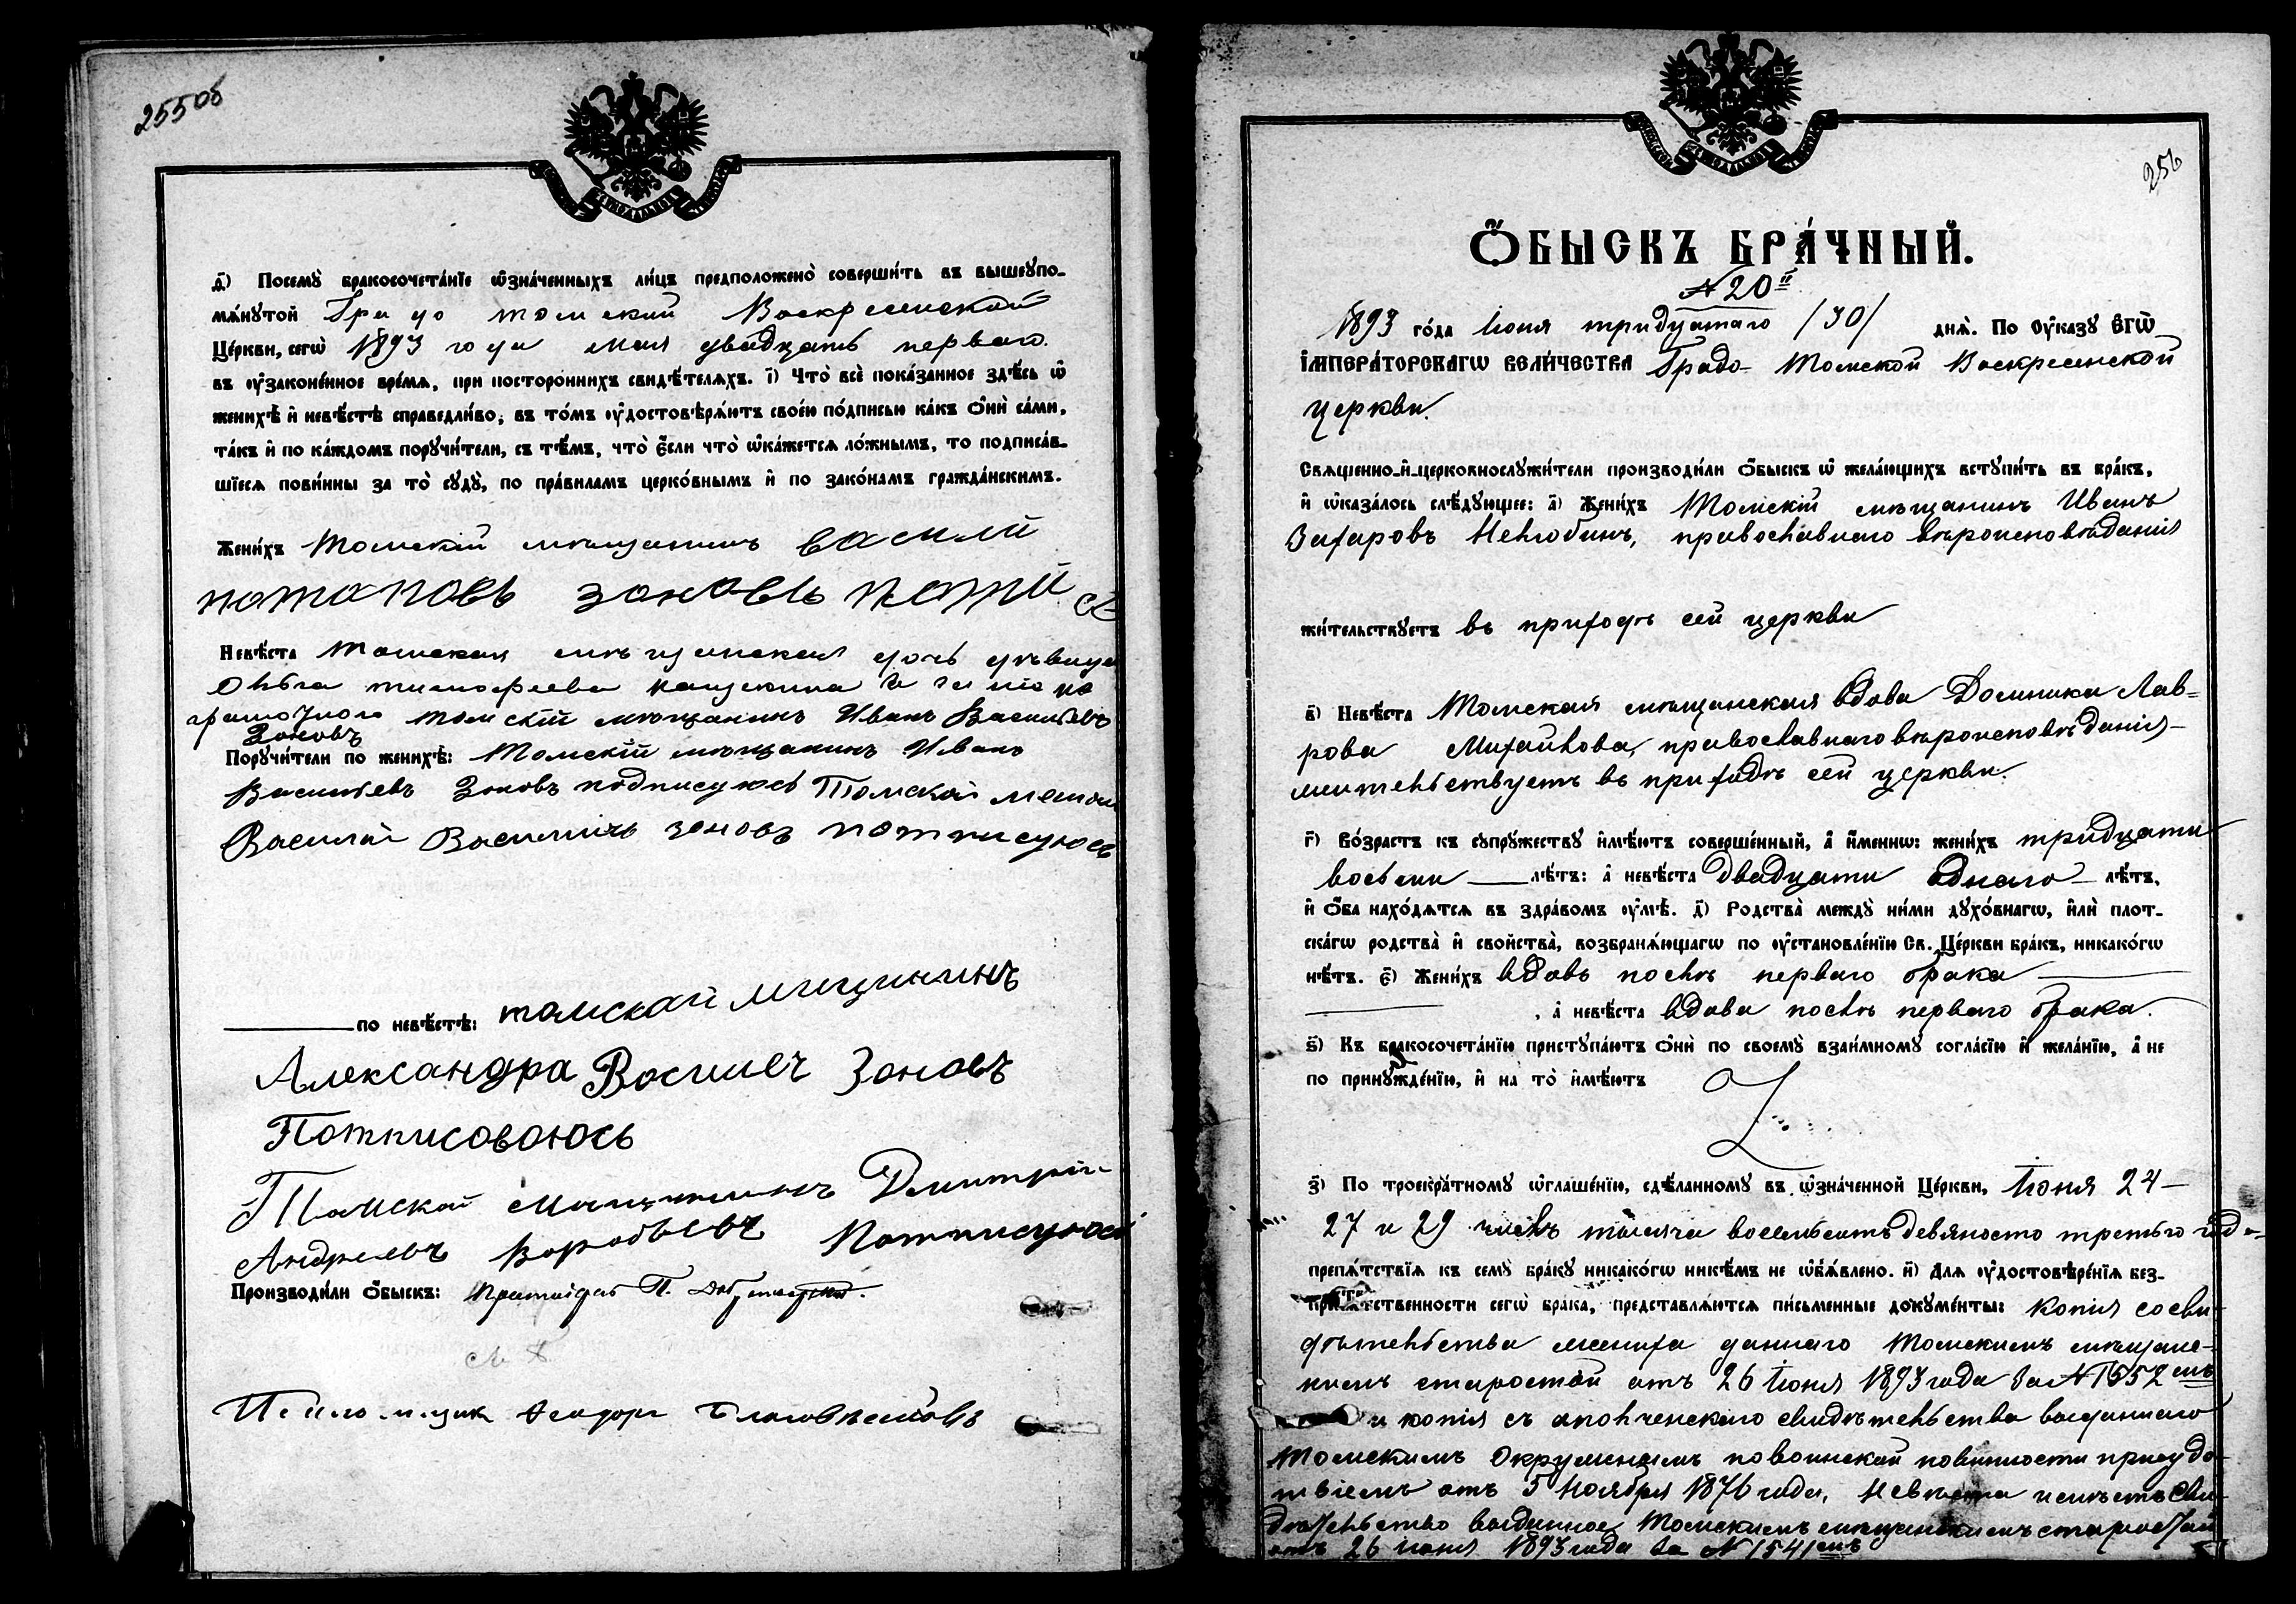 255 об
д҃) Посемꙋ̀ бракосочета́нїе ѡ҆зна́ченныхъ ли́цъ предположено̀ соверши́ть въ вышеꙋпо-
мѧ́нꙋтой Градо томской Воскресенской
Це́ркви, сегѡ̀ 1893 года мая двадцать перваго
въ ᲂу҆законе́нное вре́мѧ, при постороннихъ свидѣ́телѧхъ. і҃) Что̀ всѐ пока́занное здѣ́сь ѡ҆
женихѣ̀ и҆ невѣ́стѣ справедли́во, въ то́мъ ᲂу҆достовѣрѧ́ютъ свое́ю по́дписью ка́къ ѻ҆нѝ са́ми,
та́къ и҆ по ка́ждомъ порꙋчи́тели, съ тѣ́мъ, что̀ є҆́сли что̀ ѡ҆ка́жетсѧ ло́жнымъ, то подписа́в-
шїесѧ пови́нны за то̀ сꙋдꙋ̀, по пра́виламъ церко́внымъ и҆ по зако́намъ гражда́нскимъ.
Жени́хъ Томскій мѣщанинъ васили
потаповъ зоновъ
Невѣ́ста томская мѣщанская дочь дѣвица
Ольга тимофеева кащекина а за не
грамотного томскій мѣщанинъ Иванъ Васильевъ
Зоновъ
Порꙋчи́тели по женихѣ̀: Томскій мѣщанинъ Иванъ
Васильевъ Зоновъ подписуюсь Томской
Василий Василичъ зоновъ потписуюсь
по невѣ́стѣ: томской мищининъ
Александра Василеч Зоновъ
Потписоваюсь
Томской мищининъ Дмитрій
Андреевъ Воробьевъ Потписуюсь
Производи́ли ѻ҆́быскъ: П.
256
Ѻ҆́быскъ бра́чный.
№ 20й
1893 го́да Іюня тридцатаго /30/ днѧ̀. По ᲂу҆ка́зꙋ є҆гѡ̀
і҆мпера́торскагѡ вели́чества Градо-Томской Воскресенской
церкви.
Свѧщенно-и҆-церковнослꙋжи́тели производи́ли ѻ҆́быскъ ѡ҆ жела́ющихъ встꙋпи́ть въ бра́къ,
и҆ ѡ҆каза́лось слѣ́дꙋющее: а҃) Жени́хъ Томскій мѣщанинъ Иванъ
Захаровъ Нелюбинъ, православнаго вѣроисповѣданія
жи́тельствꙋетъ въ приходѣ сей церкви
в҃) Невѣ́ста Томская мѣщанская вдова Домника Лав=
рова Михайлова, православнаго вѣроисповѣданія-
жительствуетъ въ приходѣ сей церкви.
г҃) Во́зрастъ къ сꙋпрꙋ́жествꙋ и҆мѣ́ютъ соверше́нный, а҆ и҆́меннѡ: жени́хъ тридцати
восьми лѣ́тъ: а҆ невѣ́ста двадцати одного лѣ́тъ,
и҆ ѻ҆́ба нахо́дѧтсѧ въ здра́вомъ ᲂу҆мѣ̀. д҃) Родства̀ междꙋ̀ ни́ми дꙋхо́внагѡ, и҆лѝ плот-
ска́гѡ родства̀ и҆ свойства̀, возбранѧ́ющагѡ по ᲂу҆становле́нїю Св. Це́ркви бра́къ, никако́гѡ
нѣ́тъ. є҃) Жени́хъ вдовъ послѣ перваго брака
, а҆ невѣ́ста вдова послѣ перваго брака.
ѕ҃) Къ бракосочета́нїю пристꙋпа́ютъ ѻ҆нѝ по своемꙋ̀ взаи́мномꙋ согла́сїю и҆ жела́нїю, а҆ не
по принꙋжде́нїю, и҆ на то̀ и҆мѣ́ютъ
з҃) По троекра́тномꙋ ѡ҆глаше́нїю, сдѣ́ланномꙋ въ ѡ҆зна́ченной Це́ркви, Іюня 24-
27 и 29 числъ тысяча восемьсотъ девяносто третьго года
препѧ́тствїѧ къ семꙋ̀ бра́кꙋ никако́гѡ никѣ́мъ не ѡ҆б̾ѧ́влено. и҃) Длѧ ᲂу҆достовѣре́нїѧ без-
препѧ́тственности сегѡ̀ бра́ка, представлѧ́ютсѧ пи́сьменные докꙋме́нты: копія со сви-
дѣтельства жениха даннаго Томскимъ мѣщанс-
кимъ старостой отъ 26 Іюня 1893 года за № 1552 мъ
и копія съ ополченскаго свидѣтельства выданнаго
Томскимъ Окружнымъ по воинской повинности присуд-
ствіемъ отъ 5 Ноября 1876 года, Невѣста имѣетъ сви-
дѣтельство выданное Томскимъ мѣщанскимъ старостой
отъ 26 іюня 1893 года за № 1541 мъ